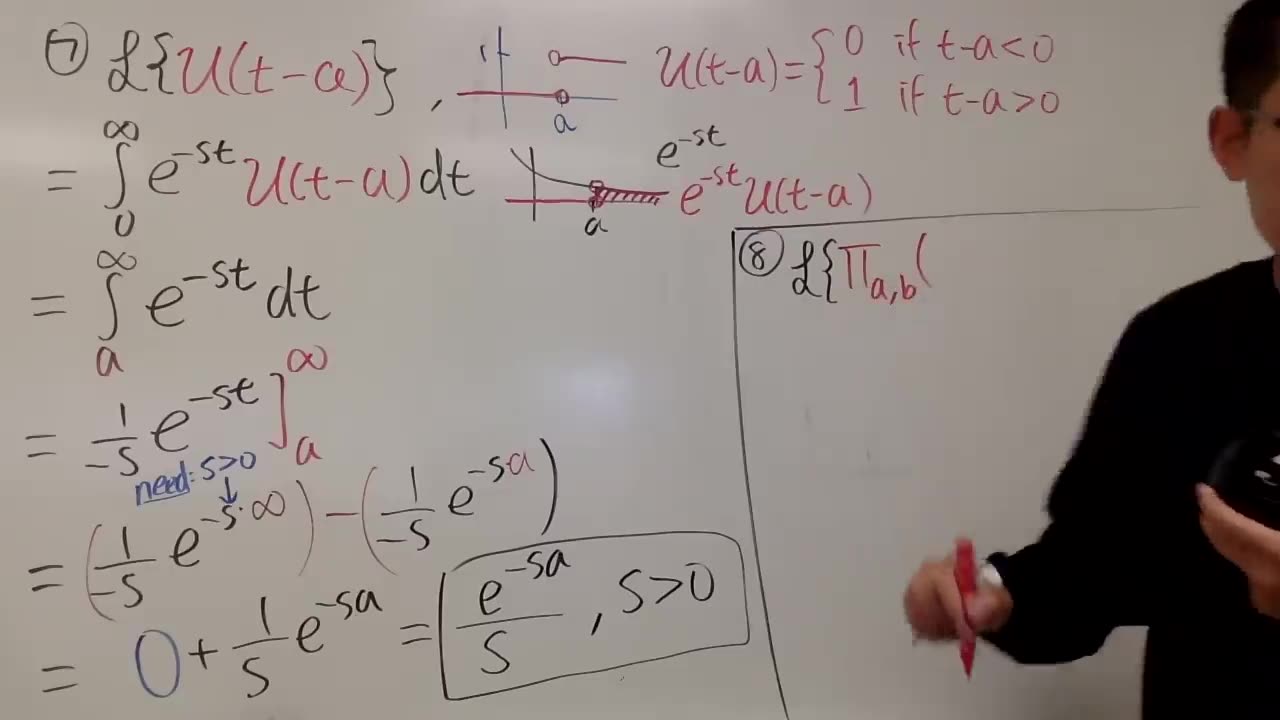 ⑦ ℒ{U(t-a)},
a
U(t-a) = { 0 if t-a<0
1 if t-a>0
= ∫₀^∞ e^{-st} U(t-a) dt
a
e^{-st}
e^{-st} U(t-a)
= ∫ₐ^∞ e^{-st} dt
= 1/-s e^{-st} ]ₐ^∞
need: s>0
= (1/-s e^{-s·∞}) - (1/-s e^{-sa})
= 0 + 1/s e^{-sa} = e^{-sa}/s , s>0
⑧ ℒ{Π_{a,b}(